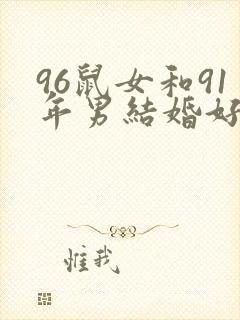 96鼠女和91
年男結婚好
惟我